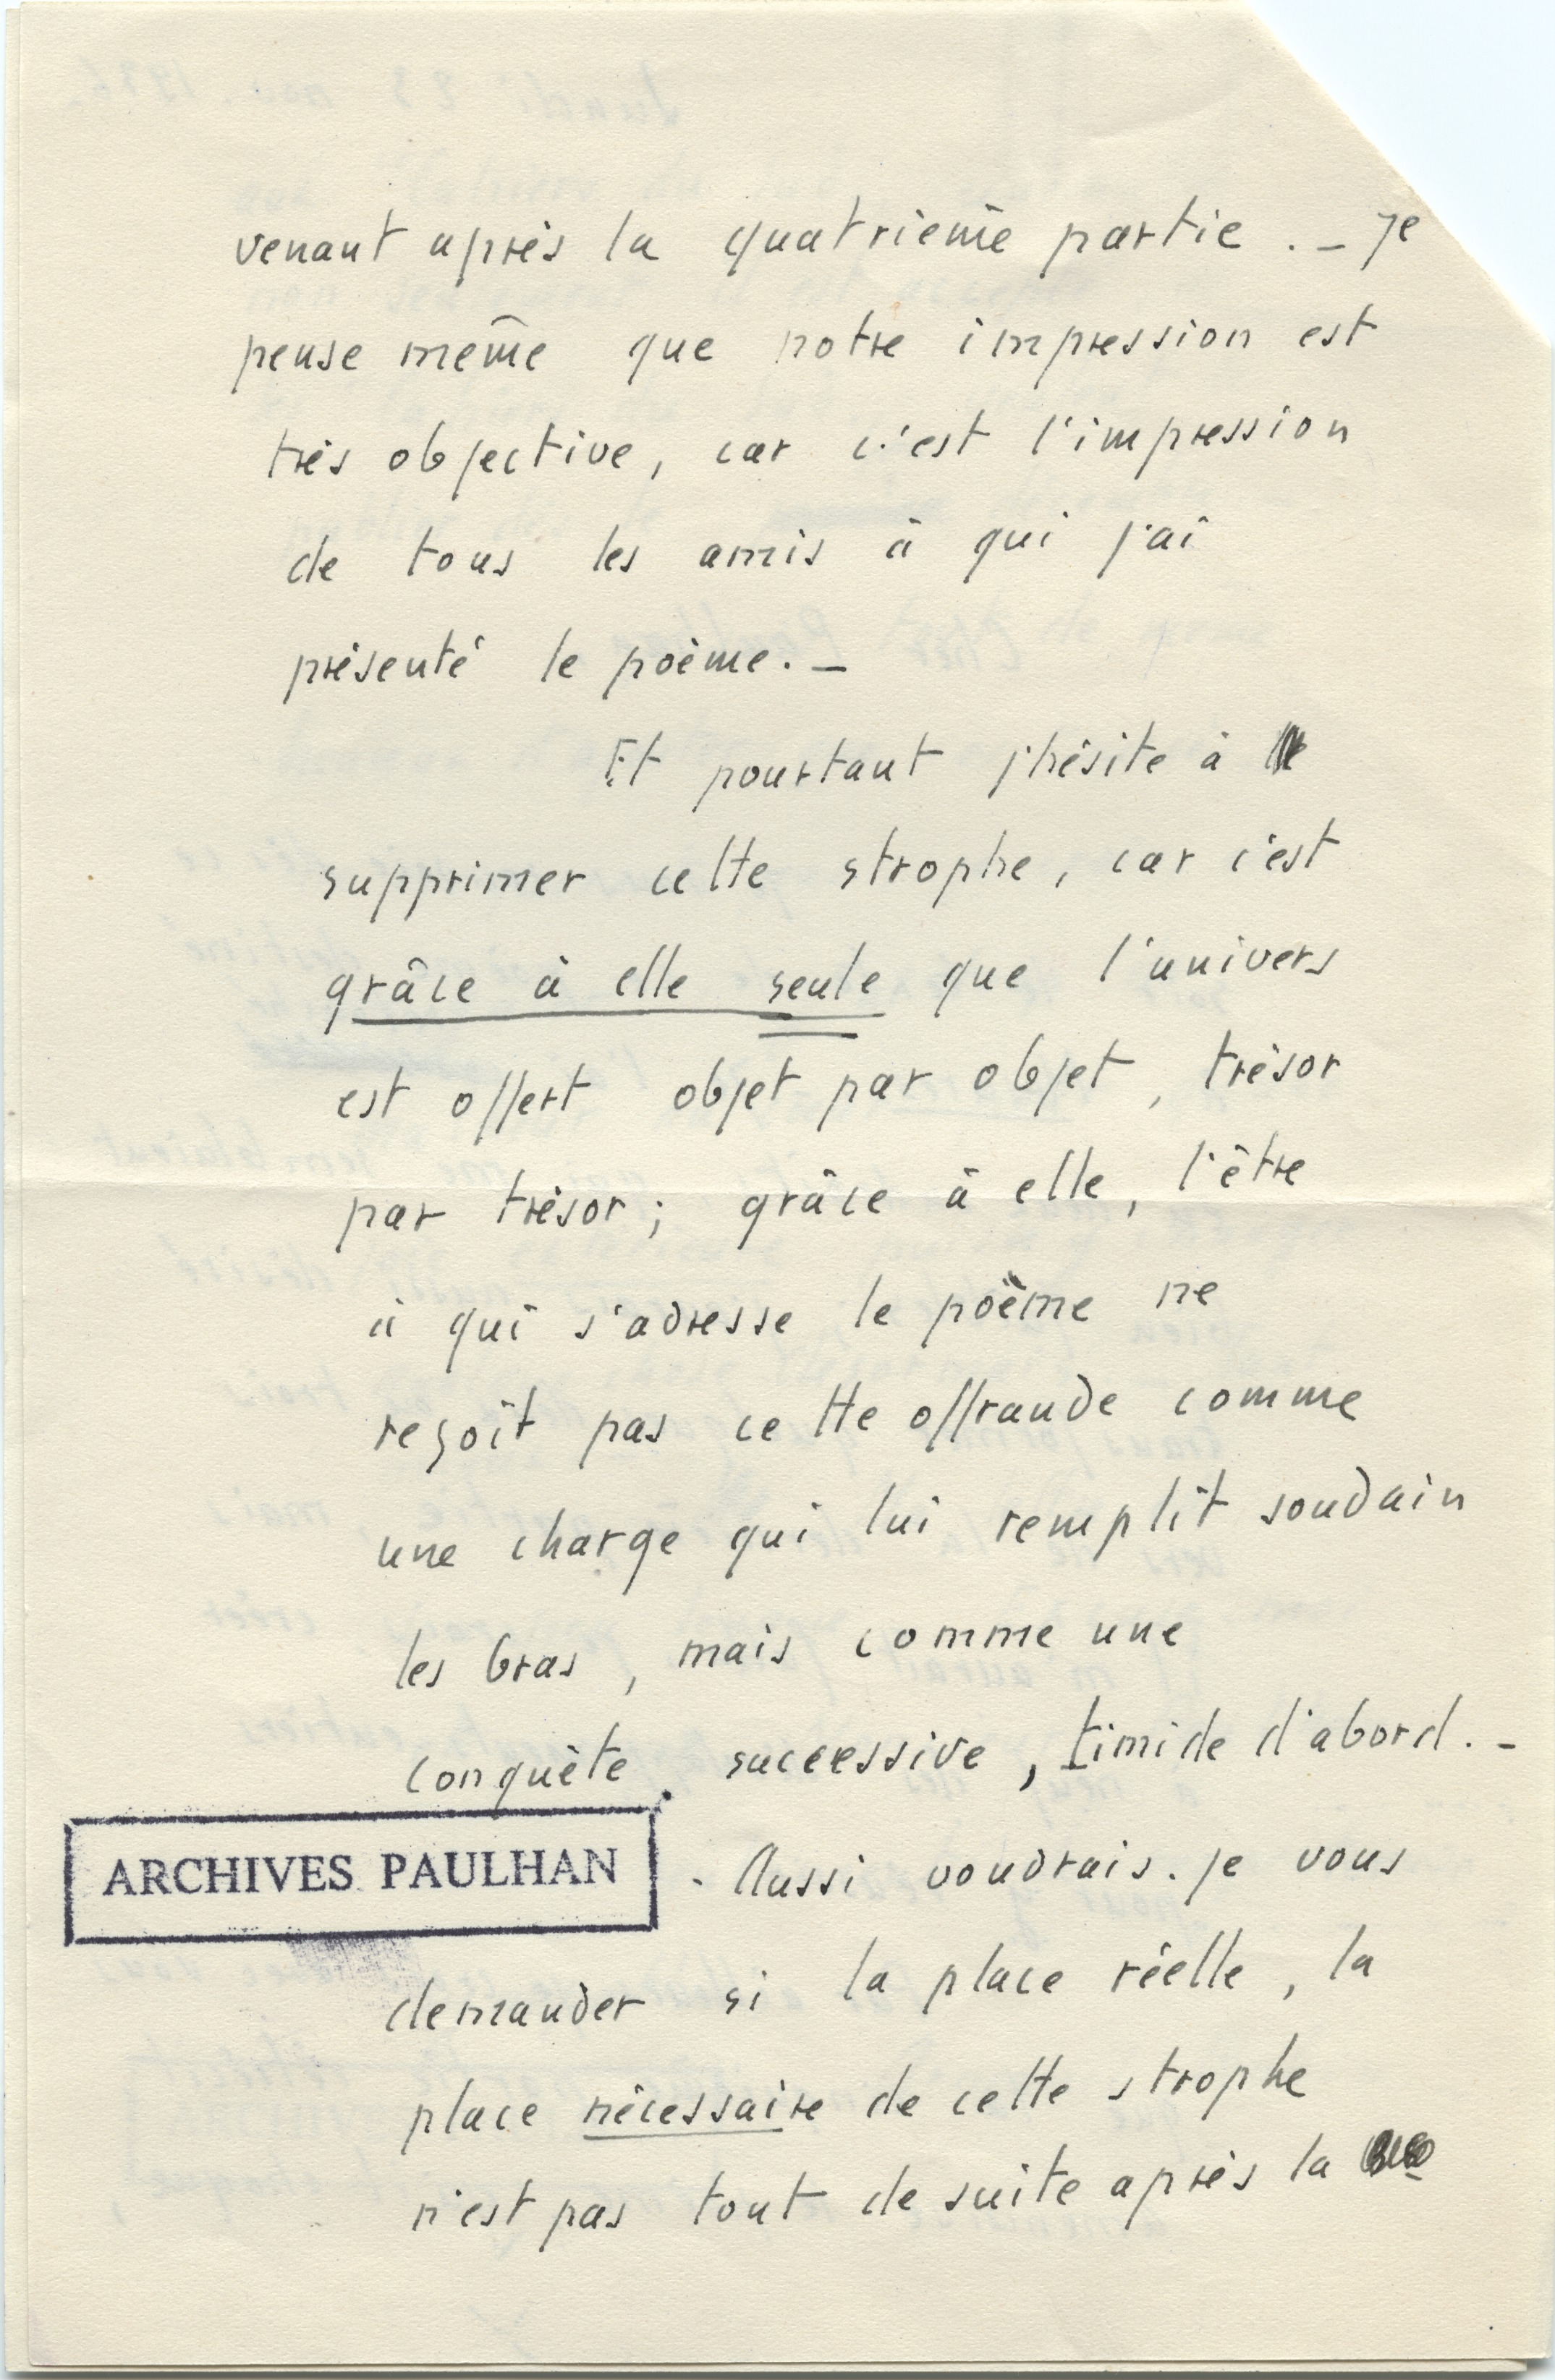 venant après la quatrième partie. _ Je
pense même que notre impression est
très objective, car c'est l'impression
de tous les amis à qui j'ai
présenté le poème. _
Et pourtant j'hésite à
supprimer cette strophe, car c'est
grâce à elle seule que l'univers
est offert objet par objet, trésor
par trésor; grâce à elle, l'être
à qui s'adresse le poème ne
reçoit pas cette offrande comme
une charge qui lui remplit soudain
les bras, mais comme une
conquête successive, timide d'abord. _
ARCHIVES PAULHAN
. Aussi voudrais-je vous
demander si la place réelle, la
place nécessaire de cette strophe
n'est pas tout de suite après la